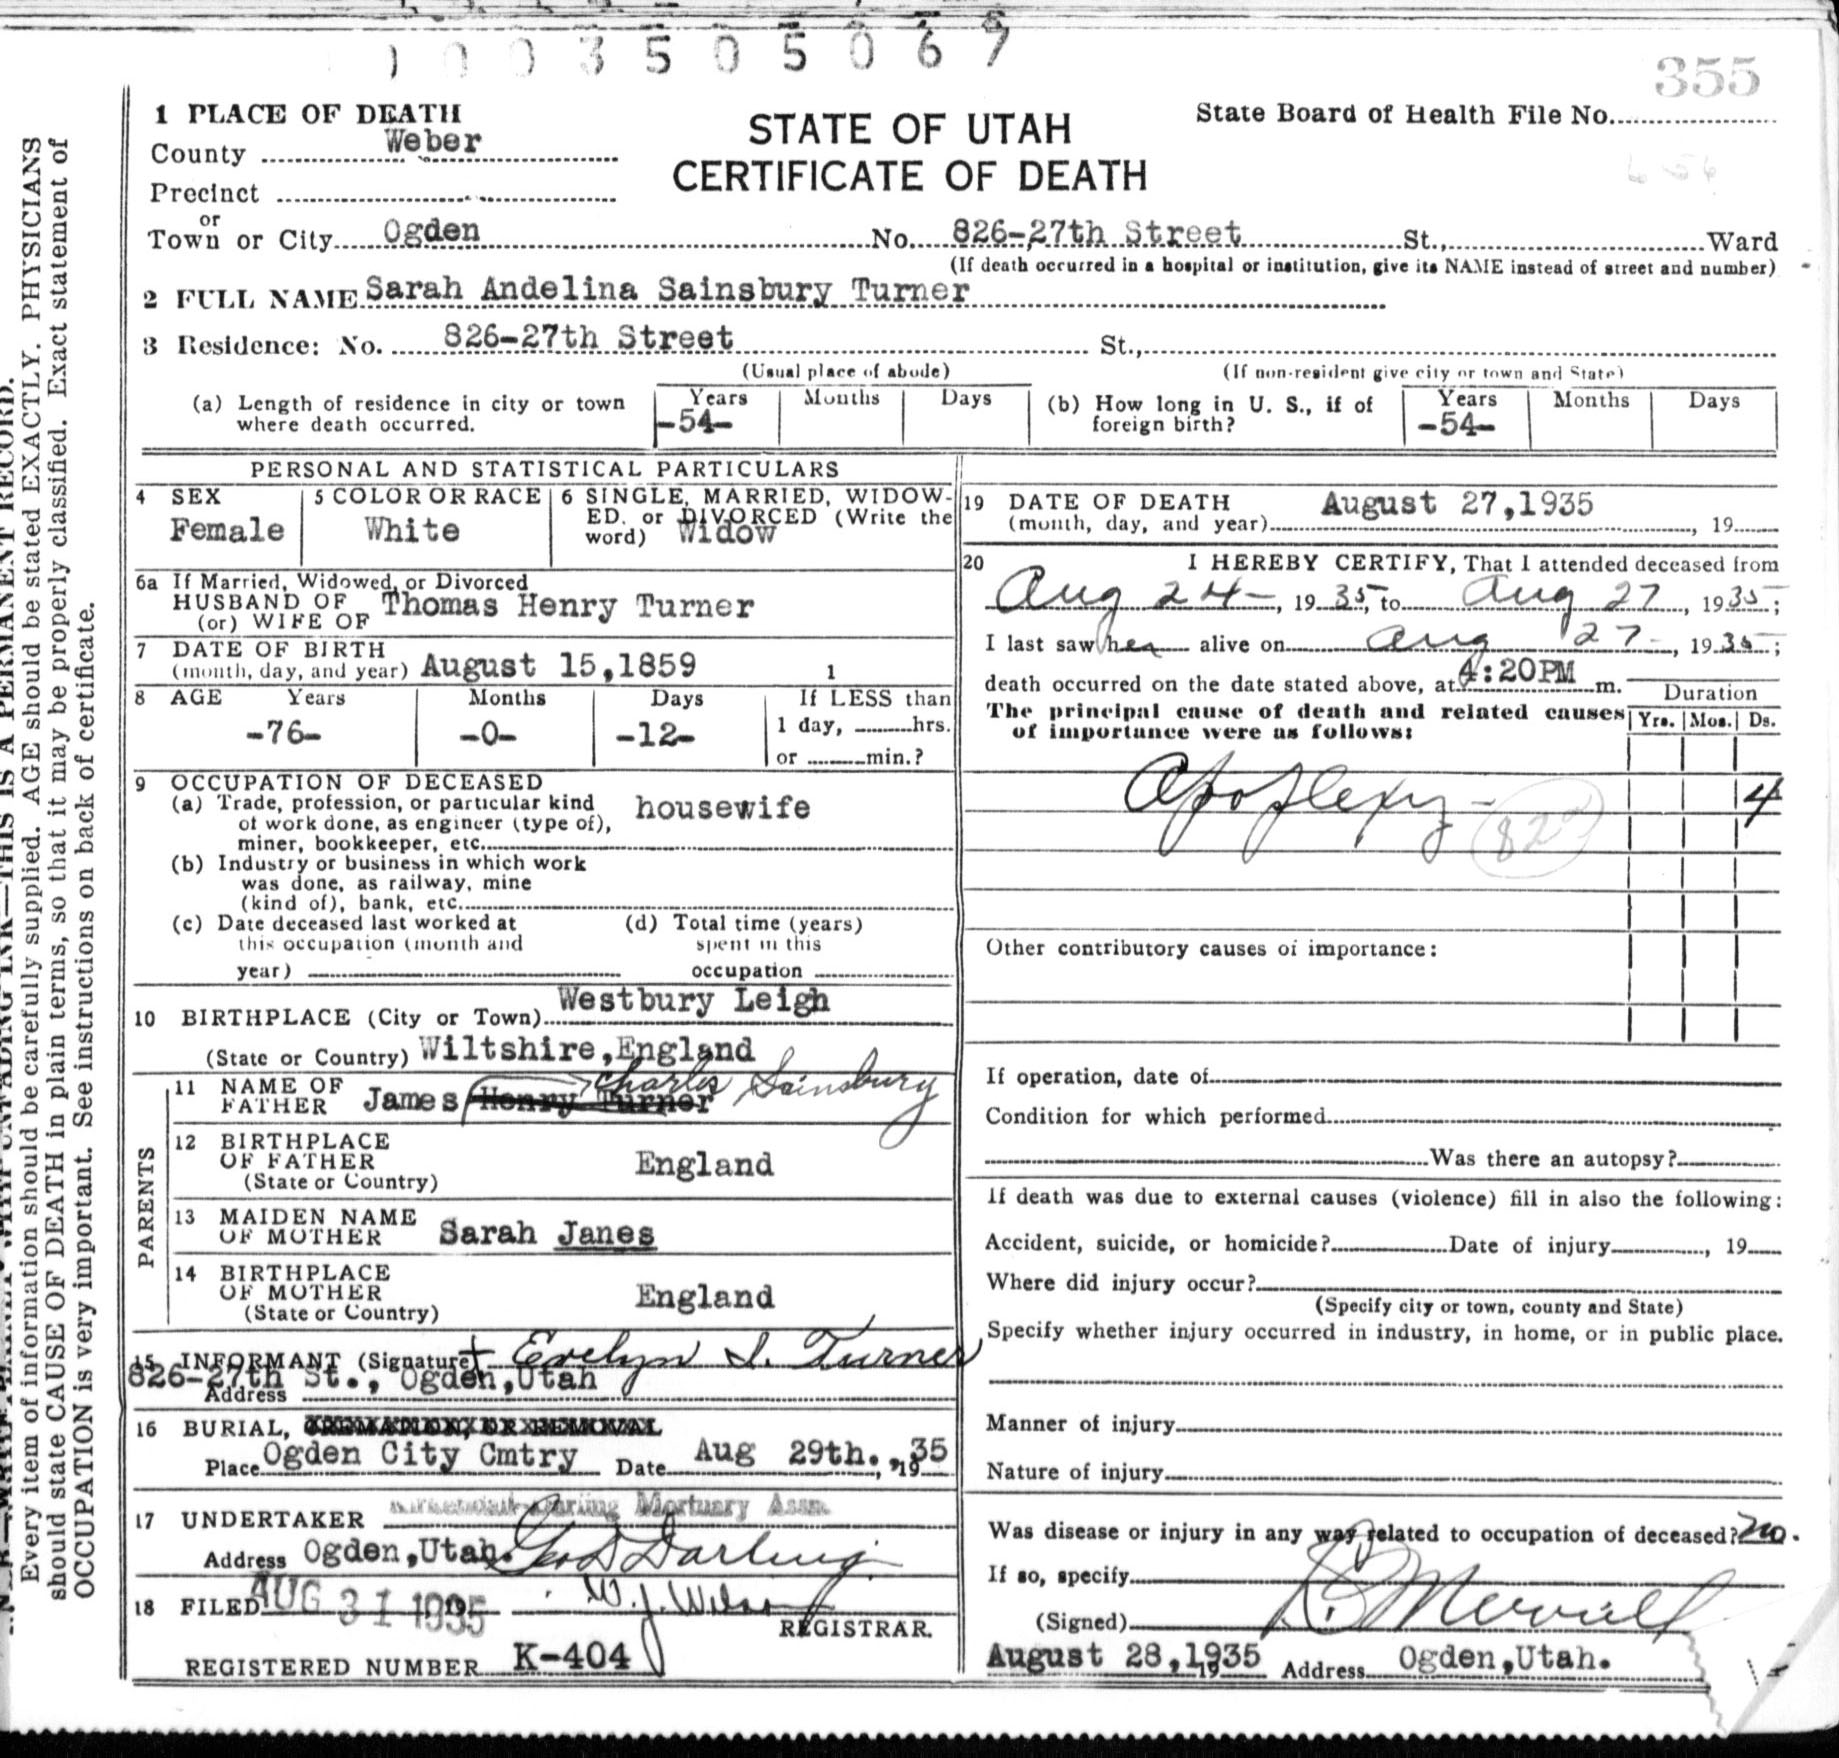 1003505067
355
1 PLACE OF DEATH
County Weber
Precinct
or
Town or City Ogden No. 826-27th Street St., Ward
(If death occurred in a hospital or institution, give its NAME instead of street and number)
STATE OF UTAH
CERTIFICATE OF DEATH
State Board of Health File No.
2 FULL NAME Sarah Andelina Sainsbury Turner
3 Residence: No. 826-27th Street St.,
(Usual place of abode) (If non-resident give city or town and State)
(a) Length of residence in city or town where death occurred. Years -54- Months Days
(b) How long in U. S., if of foreign birth? Years -54- Months Days
PERSONAL AND STATISTICAL PARTICULARS
4 SEX Female
5 COLOR OR RACE White
6 SINGLE, MARRIED, WIDOW-
ED, or DIVORCED (Write the
word) Widow
6a If Married, Widowed, or Divorced
HUSBAND OF Thomas Henry Turner
(or) WIFE OF
7 DATE OF BIRTH
(month, day, and year) August 15,1859 1
8 AGE Years Months Days If LESS than
-76- -0- -12- 1 day, hrs.
or min.?
9 OCCUPATION OF DECEASED
(a) Trade, profession, or particular kind housewife
of work done, as engineer (type of),
miner, bookkeeper, etc.
(b) Industry or business in which work
was done, as railway, mine
(kind of), bank, etc.
(c) Date deceased last worked at (d) Total time (years)
this occupation (month and spent in this
year) occupation
10 BIRTHPLACE (City or Town) Westbury Leigh
(State or Country) Wiltshire,England
PARENTS
11 NAME OF
FATHER James Henry Turner Charles Sainsbury
12 BIRTHPLACE
OF FATHER England
(State or Country)
13 MAIDEN NAME
OF MOTHER Sarah Janes
14 BIRTHPLACE
OF MOTHER England
(State or Country)
15 INFORMANT (Signature) Evelyn I. Turner
826-27th St., Ogden,Utah
Address
16 BURIAL, CREMATION, OR REMOVAL
Place Ogden City Cmtry Date Aug 29th., 19 35
17 UNDERTAKER Darling Mortuary Assn.
Address Ogden,Utah. Geo D Darling
18 FILED AUG 31 1935 W. J. Wilson
REGISTRAR.
REGISTERED NUMBER K-404
19 DATE OF DEATH August 27,1935
(month, day, and year) , 19
20 I HEREBY CERTIFY, That I attended deceased from
Aug 24, 1935, to Aug 27, 1935;
I last saw her alive on Aug 27, 1935;
death occurred on the date stated above, at 4:20PM m.
The principal cause of death and related causes
of importance were as follows:
Duration
Yrs. Mos. Ds.
Apoplexy - 4
Other contributory causes of importance:
If operation, date of
Condition for which performed
Was there an autopsy?
If death was due to external causes (violence) fill in also the following:
Accident, suicide, or homicide? Date of injury , 19
Where did injury occur?
(Specify city or town, county and State)
Specify whether injury occurred in industry, in home, or in public place.
Manner of injury
Nature of injury
Was disease or injury in any way related to occupation of deceased? no.
If so, specify
(Signed) Merrill
August 28,1935 19 Address Ogden,Utah.
Every item of information should be carefully supplied. AGE should be stated EXACTLY. PHYSICIANS
should state CAUSE OF DEATH in plain terms, so that it may be properly classified. Exact statement of
OCCUPATION is very important. See instructions on back of certificate.
THIS IS A PERMANENT RECORD.